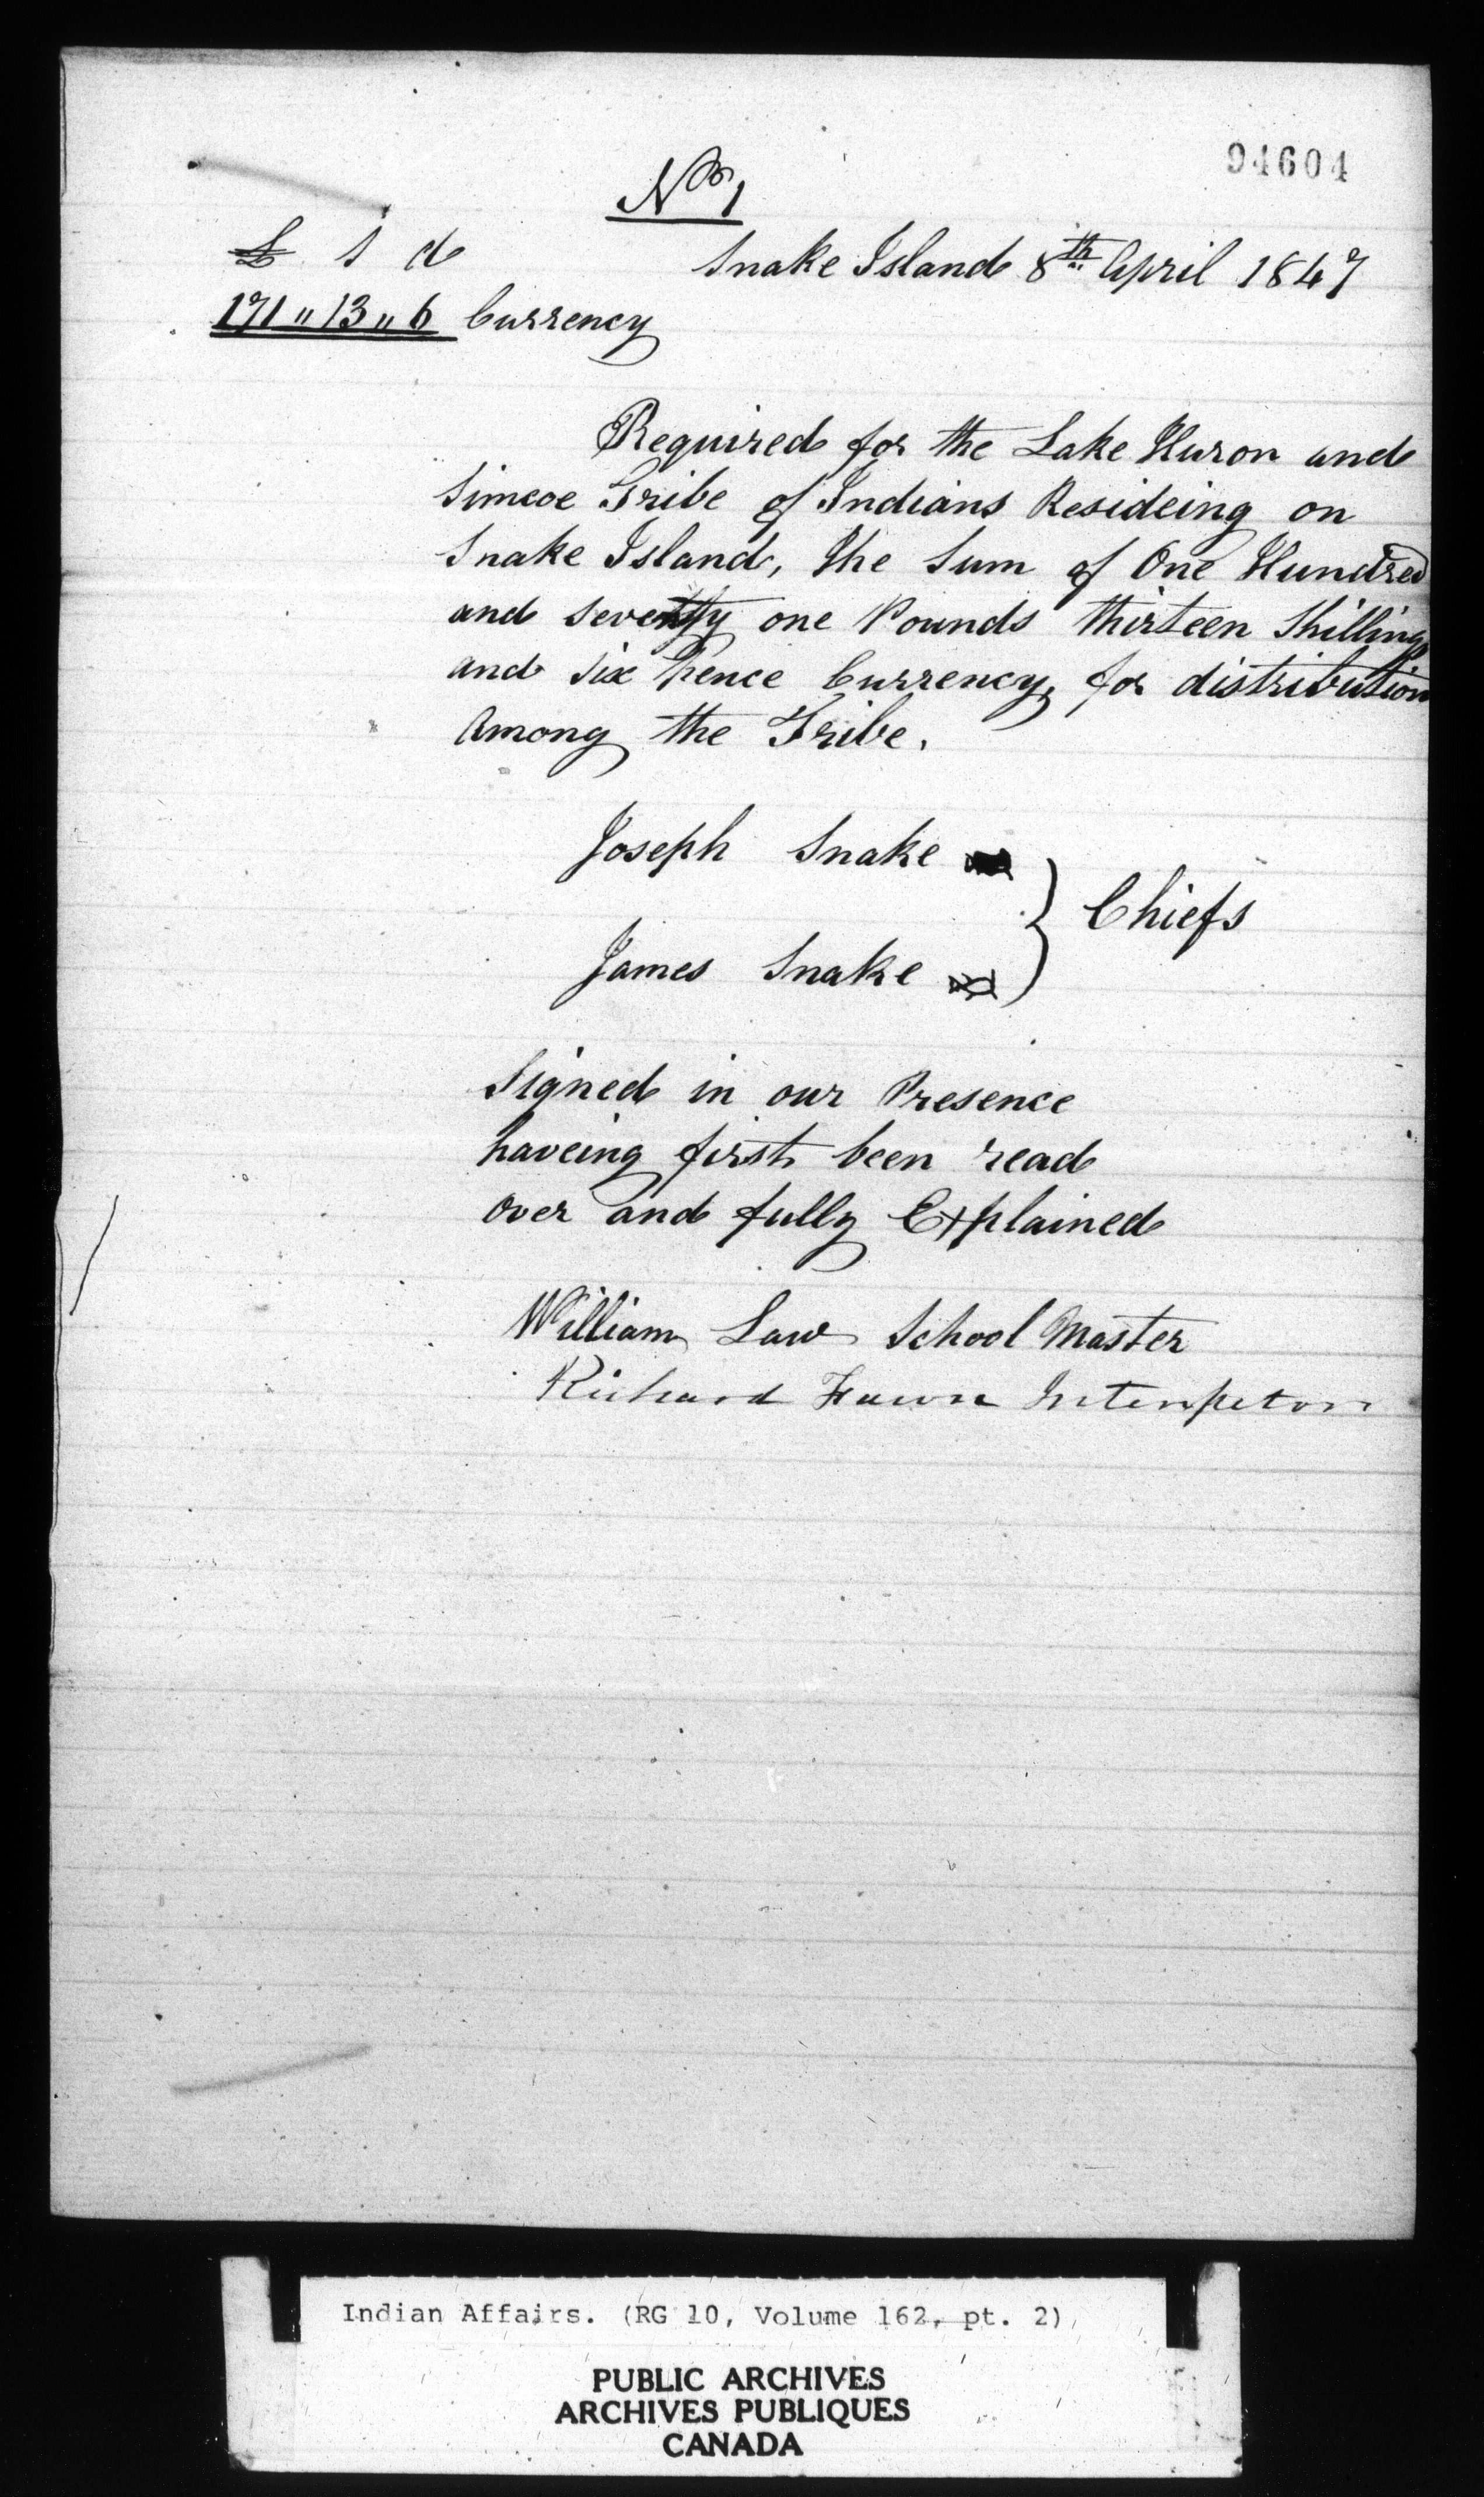 94604
No 1
£ s d
Snake Island 8th April 1847
171 " 13 " 6 Currency
Required for the Lake Huron and
Simcoe Tribe of Indians Resideing on
Snake Island, the Sum of One Hundred
and seventy one Pounds thirteen Shilling
and Six Pence Currency, for distribution
Among the Tribe.
Joseph Snake
Chiefs
James Snake
Signed in our Presence
haveing first been read
over and fully Explained
William Law School Master
Richard Fawn Interpetor
Indian Affairs. (RG 10, Volume 162, pt. 2)
PUBLIC ARCHIVES
ARCHIVES PUBLIQUES
CANADA